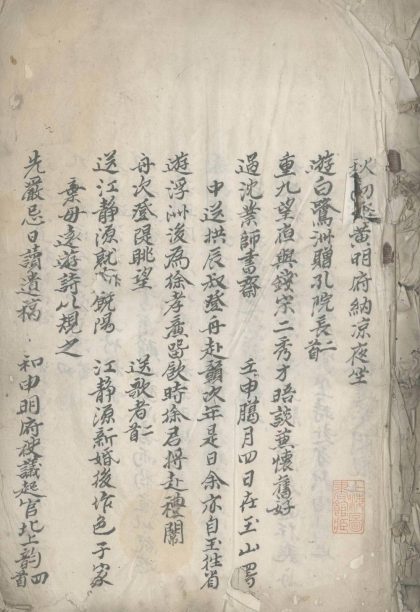 秋初黃明府納凉夜坐
遊白鷺洲贈孔院長二首
重九望夜與錢宗二秀才晤談兼懷舊好
過沈業師書齋
壬申臈月四日在玉山署
中送拱辰叔登舟赴贛次年是日余亦自玉往省
遊浮洲後為徐孝廉留飲時徐君將赴禮闈
舟次登隄眺望
送歌者二首
送江靜源就館陽
江靜源新婚後作色于家
棄母遠遊詩以規之
先嚴忌日讀遺稿
和申明府使議起官北上韵四首